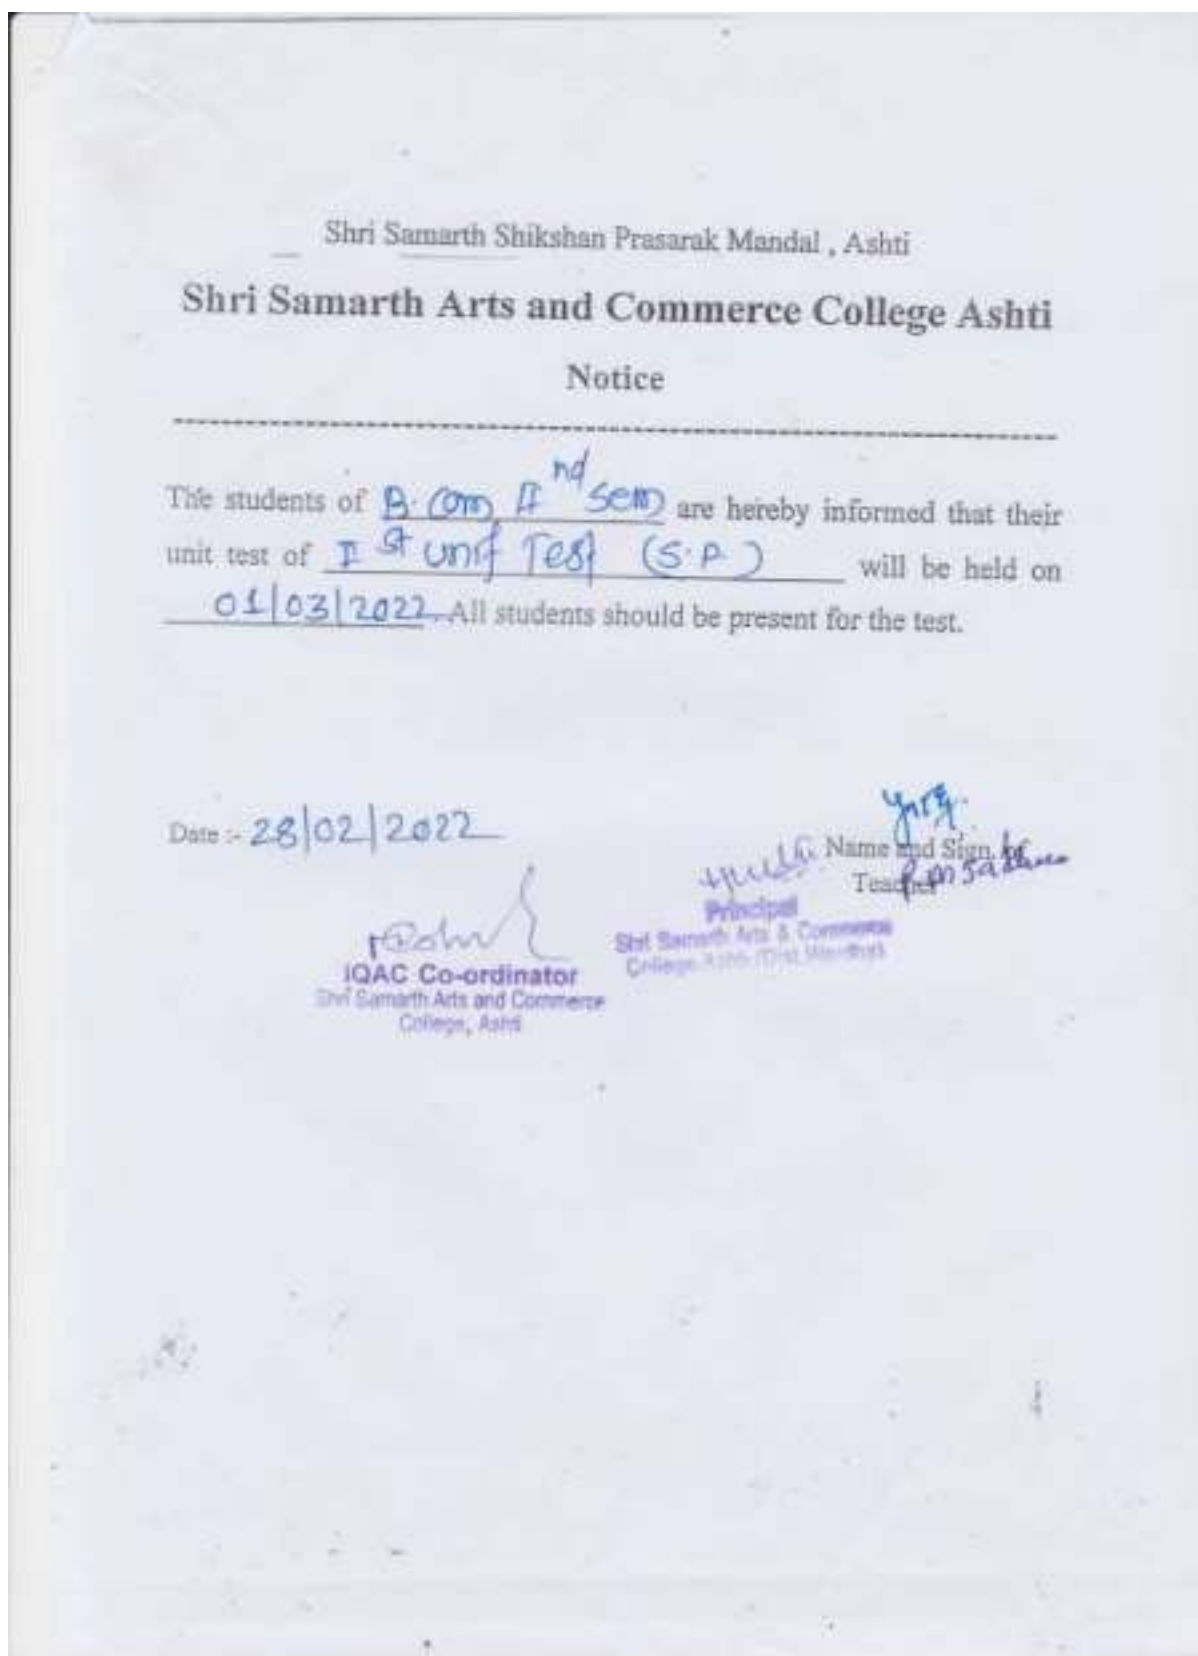 Shri Samarth Shikshan Prasarak Mandal , Ashti
Shri Samarth Arts and Commerce College Ashti
Notice
The students of B.Com II nd Sem are hereby informed that their
unit test of I st Unit Test (S.P.) will be held on
01/03/2022. All students should be present for the test.
Date :- 28/02/2022
Name and Sign. of
Teacher
Principal
Shri Samarth Arts & Commerce
College Ashti (Dist. Wardha)
IQAC Co-ordinator
Shri Samarth Arts and Commerce
College, Ashti